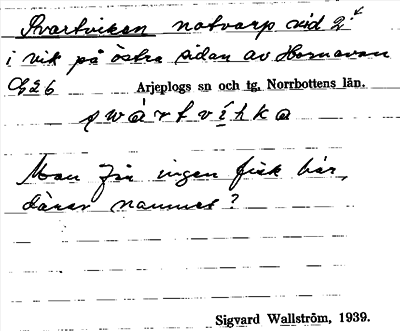 Svartviken notvarp vid 2:
i vik på östra sidan av Hornavan
G26 Arjeplogs sn och tg, Norrbottens län.
swártvíhka
Man får ingen fisk här,
därav namnet?
Sigvard Wallström, 1939.